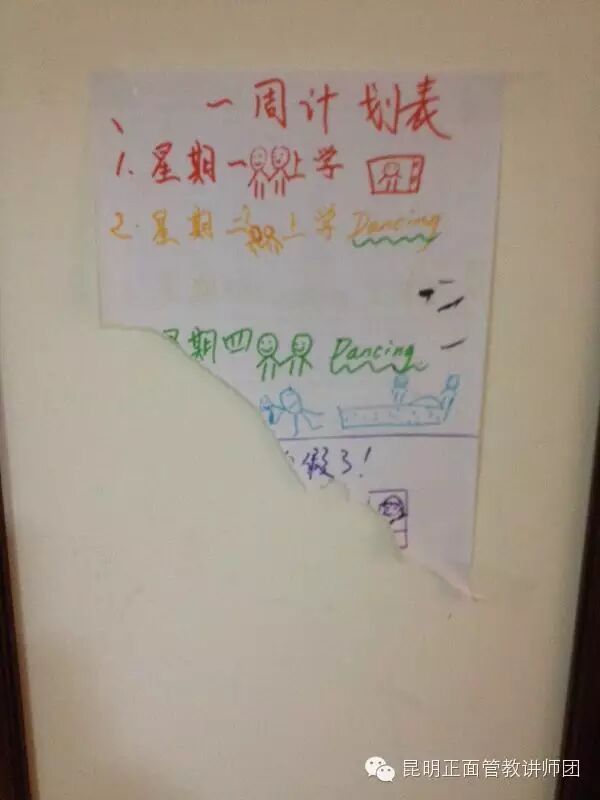 一周计划表
1. 星期一上学
2. 星期二上学 Dancing
星期四 Dancing
假了!
昆明正面管教讲师团